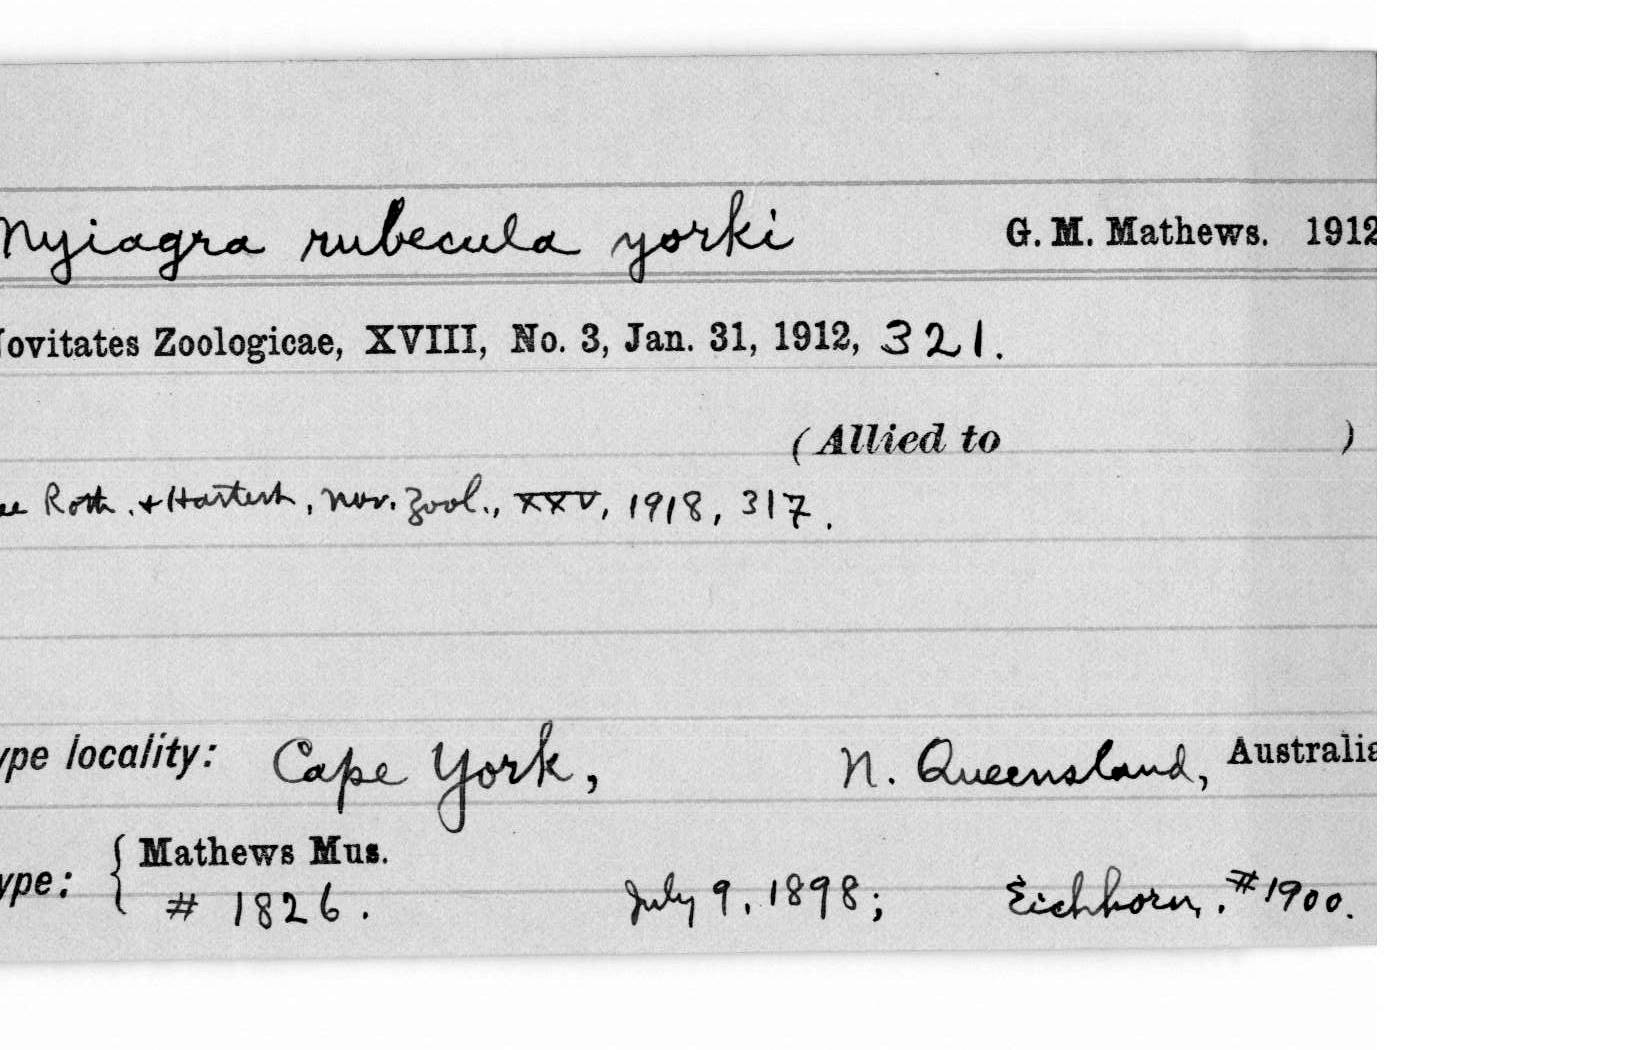 Myiagra rubecula yorki G. M. Mathews. 1912
Novitates Zoologicae, XVIII, No. 3, Jan. 31, 1912, 321.
(Allied to )
ee Roth. + Hartert, Nov. Zool., XXV, 1918, 317.
ype locality: Cape York, N. Queensland, Australia
ype: { Mathews Mus.
# 1826. July 9, 1898; Eichhorn, #1900.